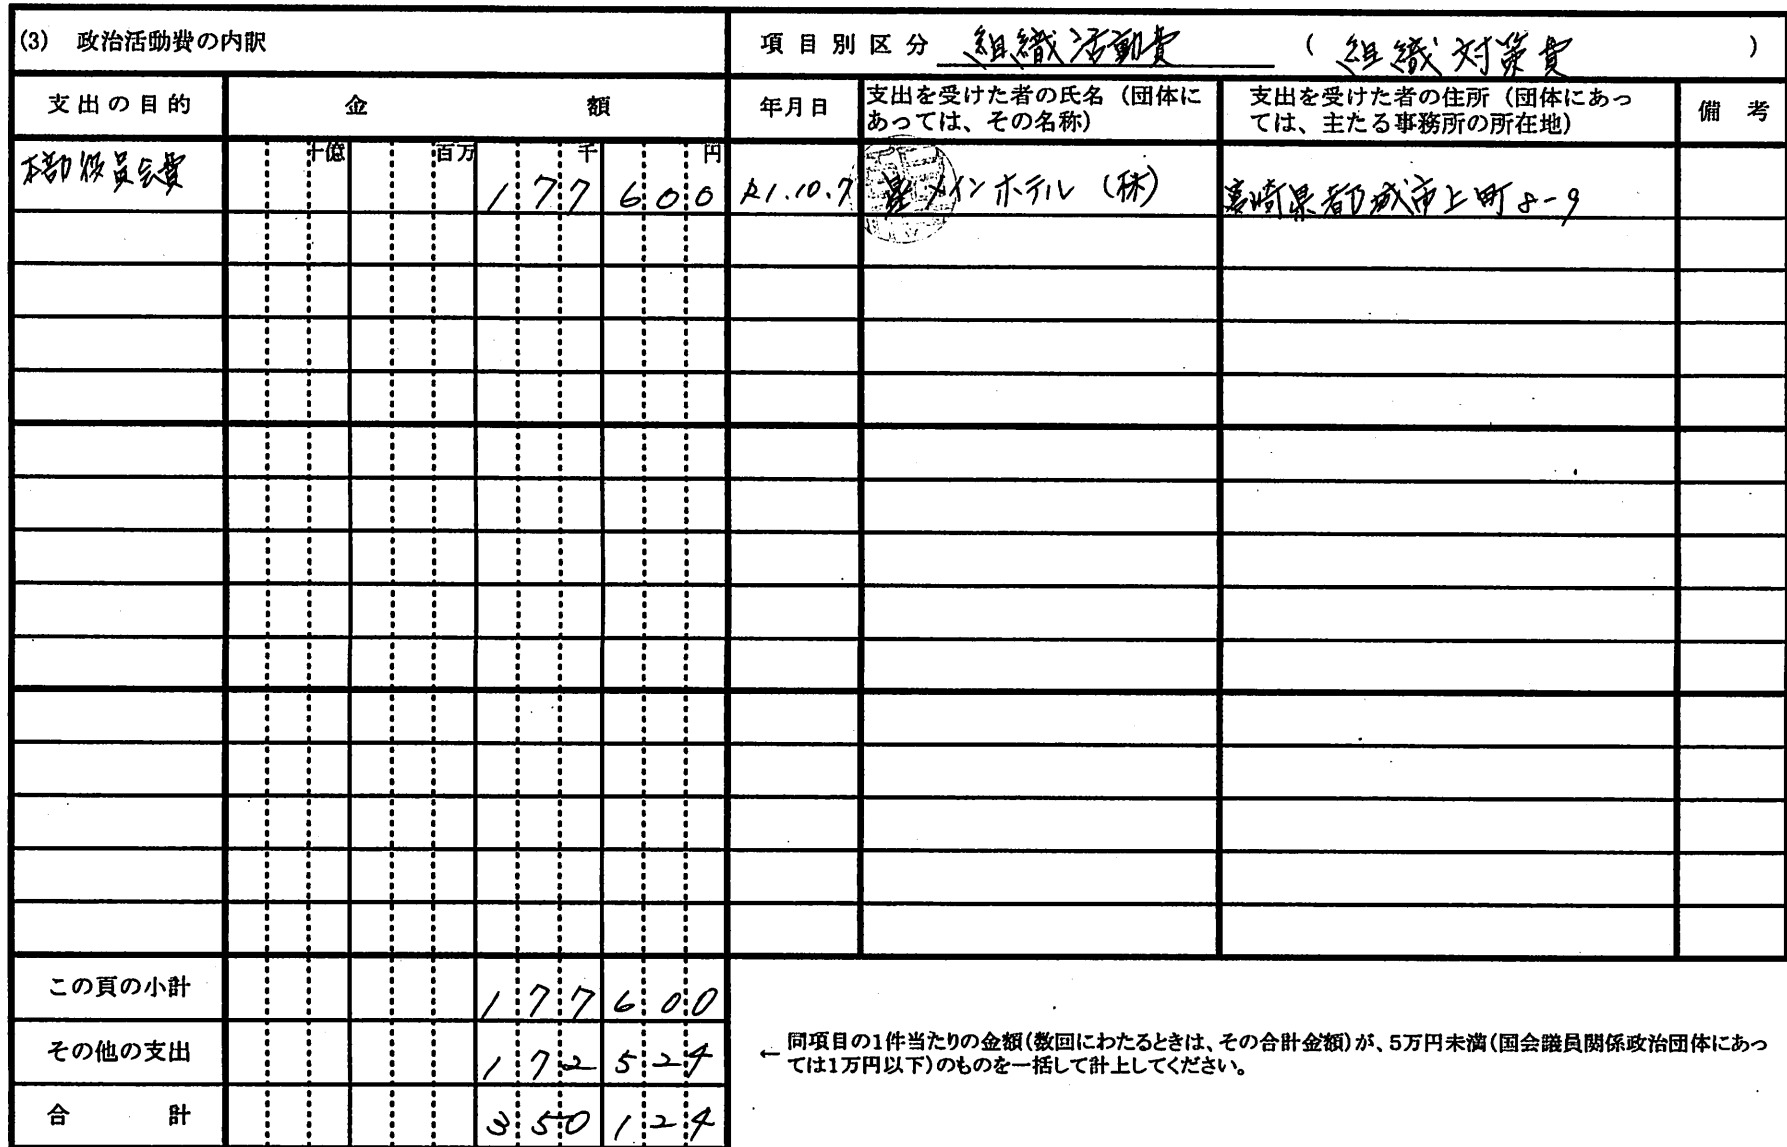 (3) 政治活動費の内訳
項目別区分 組織活動費 ( 組織対策費 )
支出の目的 金額 年月日 支出を受けた者の氏名(団体に
あっては、その名称) 支出を受けた者の住所(団体にあっ
ては、主たる事務所の所在地) 備考
十億 百万 千 円
本部役員会費 177600 R1.10.7 メインホテル (株) 宮崎県都城市上町8-9
この頁の小計 177600
その他の支出 172524
合計 350124
← 同項目の1件当たりの金額(数回にわたるときは、その合計金額)が、5万円未満(国会議員関係政治団体にあっ
ては1万円以下)のものを一括して計上してください。